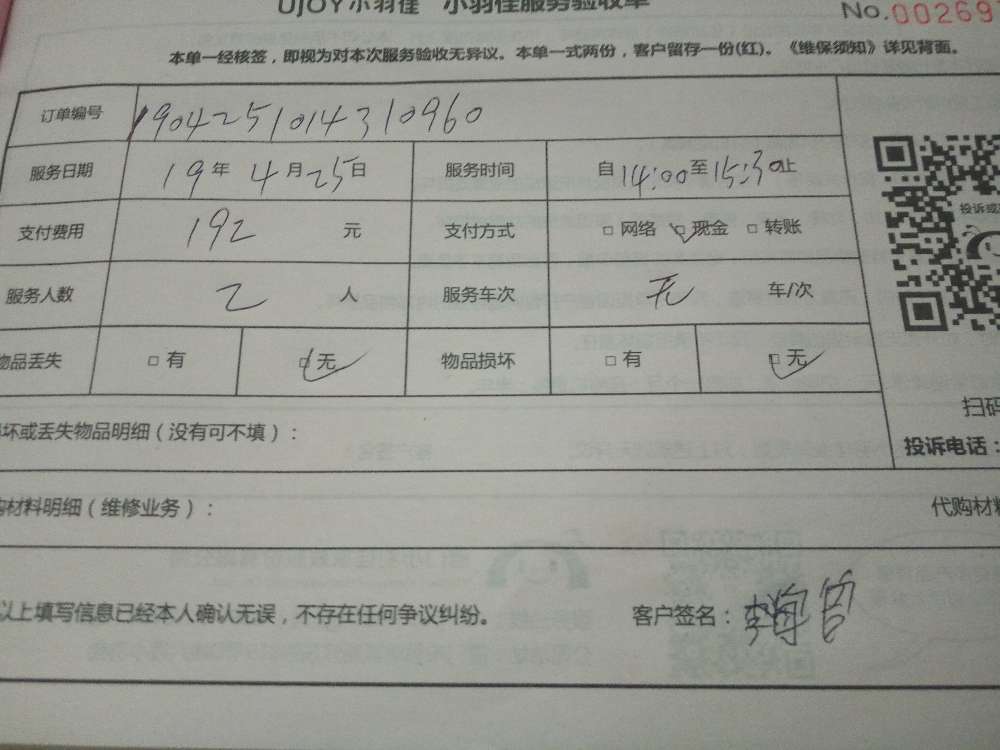 UJOY小羽佳 小羽佳服务验收单
No.00269
本单一经核签，即视为对本次服务验收无异议。本单一式两份，客户留存一份(红)。《维保须知》详见背面。
订单编号 1904251014310960
服务日期 19年4月25日 服务时间 自14:00至15:30止
支付费用 192 元 支付方式 □网络 □现金 □转账
投诉或
服务人数 2 人 服务车次 无 车/次
物品丢失 □有 □无 物品损坏 □有 □无
扫码
坏或丢失物品明细（没有可不填）：
投诉电话：
购材料明细（维修业务）： 代购材料
以上填写信息已经本人确认无误，不存在任何争议纠纷。 客户签名：李海宫